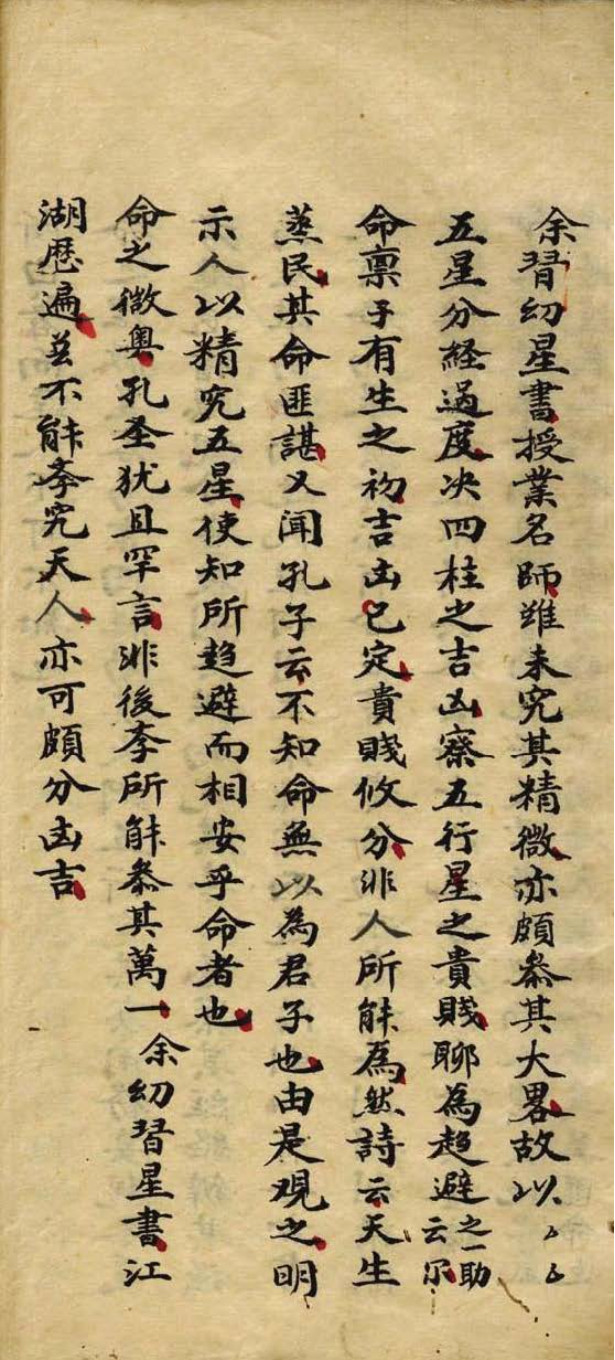 余習幼星書授業名師雖未究其精微亦頗叅其大畧故以
五星分経過度决四柱之吉凶察五行星之貴賤聊為趋避之一助云尔
命禀于有生之初吉凶已定貴賤攸分非人所能為然詩云天生
蒸民其命匪諶又闻孔子云不知命無以為君子也由是观之明
示人以精究五星使知所趋避而相安乎命者也
命之微奥孔圣犹且罕言非後李所能叅其萬一余幼習星書江
湖歷遍並不能李究天人亦可頗分凶吉